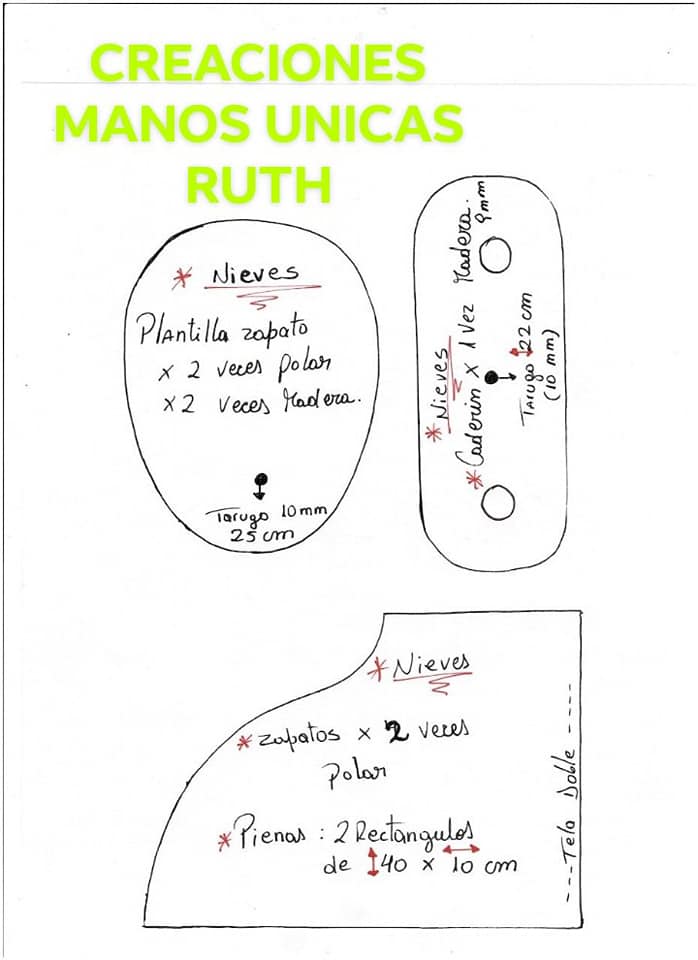 CREACIONES
MANOS UNICAS
RUTH
* Nieves
Plantilla zapato
x 2 veces polar
x 2 veces Madera.
Tarugo 10mm
25 cm
* Nieves
* Caderin x 1 Vez Madera.
9mm
Tarugo ↕22 cm
(10 mm)
* Nieves
* zapatos x 2 veces
polar
* Pienas : 2 Rectangulos
de ↕40 x 10 cm
---Tela Doble-----